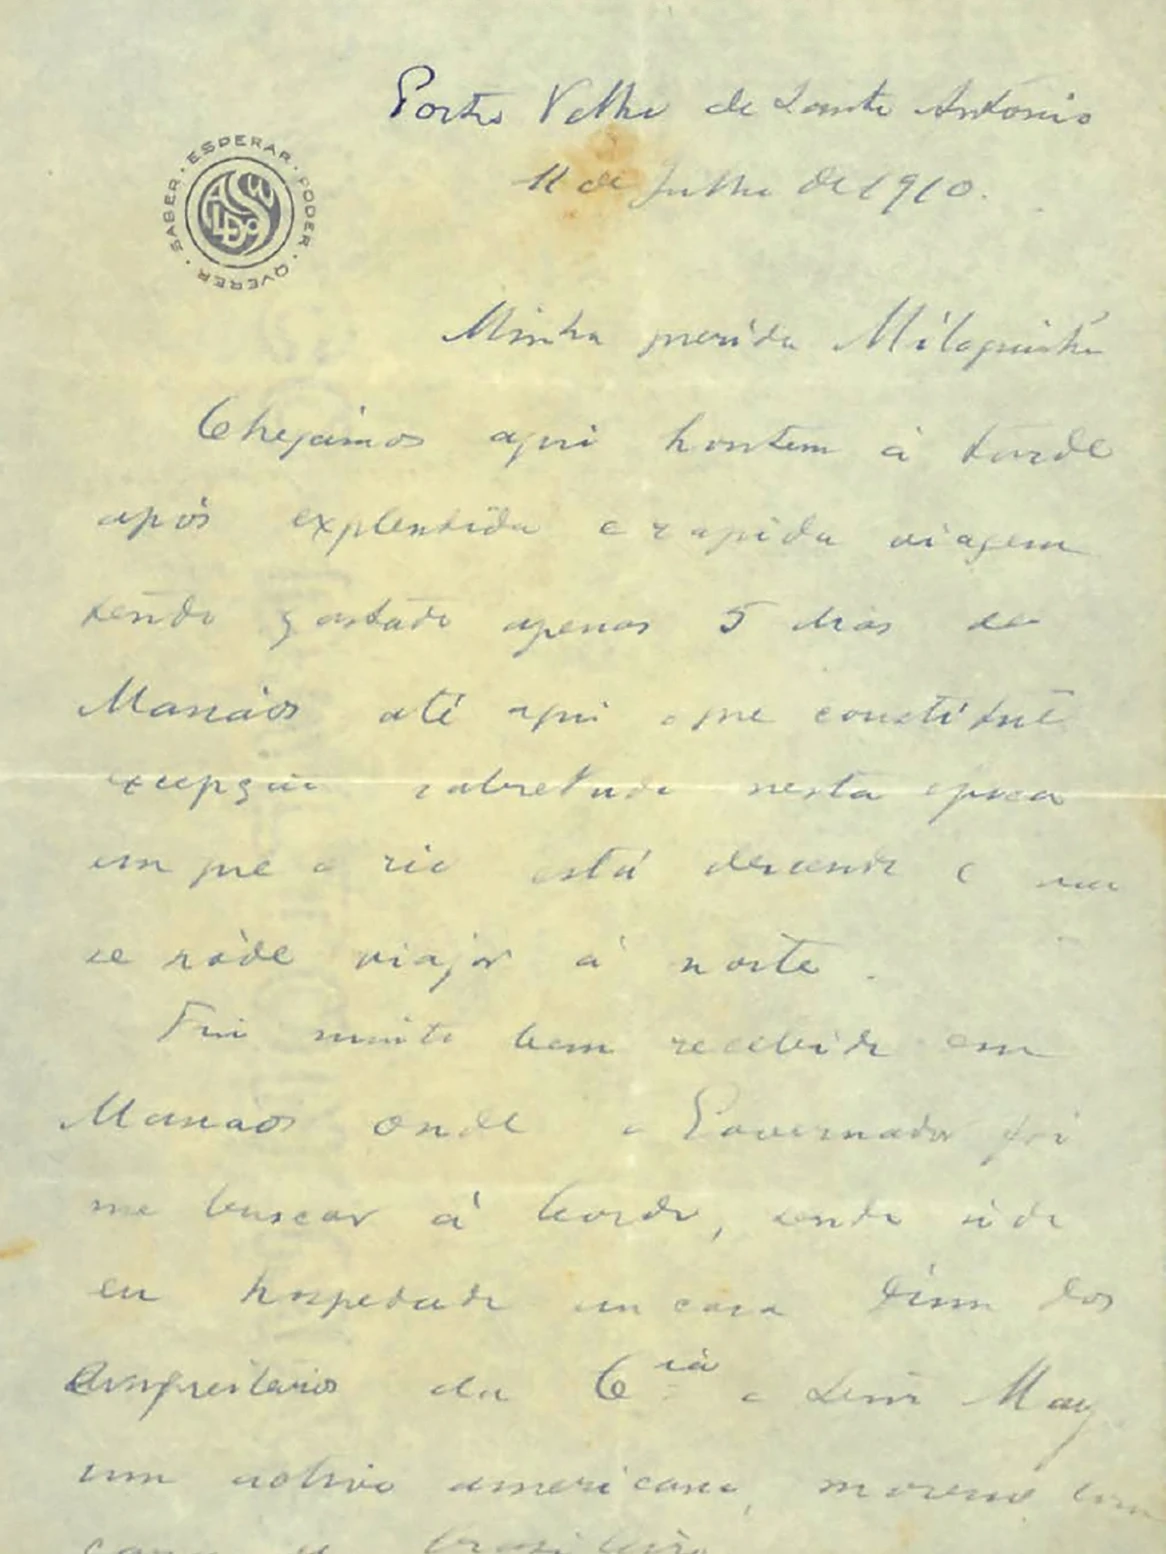 Porto Velho de Santo Antonio
11 de Julho de 1910.
SABER · ESPERAR · PODER · QVERER ·
Minha querida Miloquinha
Chegámos aqui hontem à tarde
após explendida e rapida viagem
tendo gastado apenas 5 dias de
Manáos até aqui o que constitue
excepção sobretudo nesta epoca
em que o rio está descendo e não
se póde viajar á noite.
Fui muito bem recebido em
Manáos onde o Governador foi
me buscar á bordo, sendo
eu hospedado em casa d'um dos
empreiteiros da Cia o Senr May
um activo americano, moreno com
cara de brasileiro